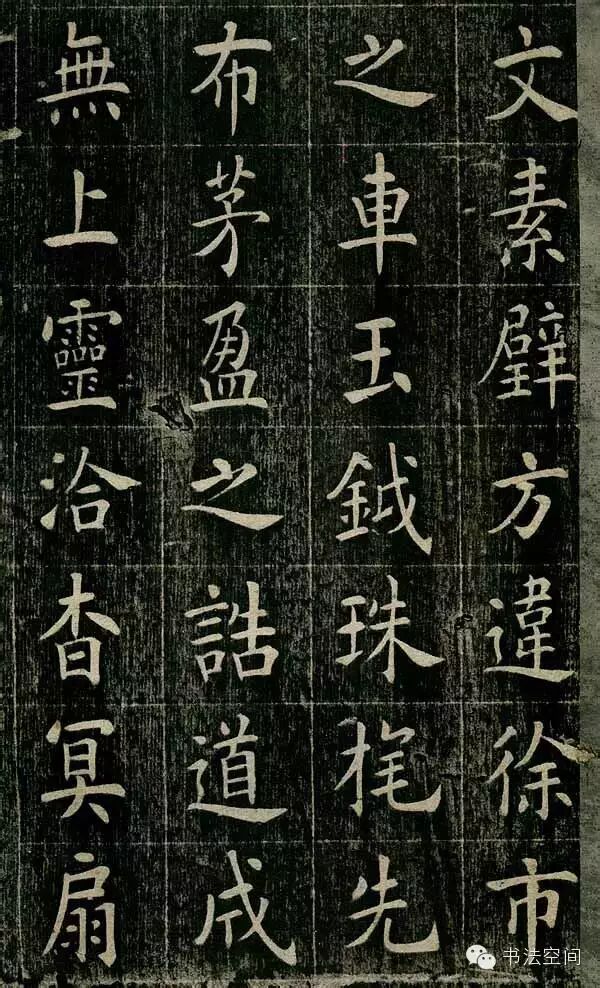 文素璧方違徐市
之車玉鉞珠旄先
布茅盈之誥道成
無上靈洽杳冥扇
书法空间